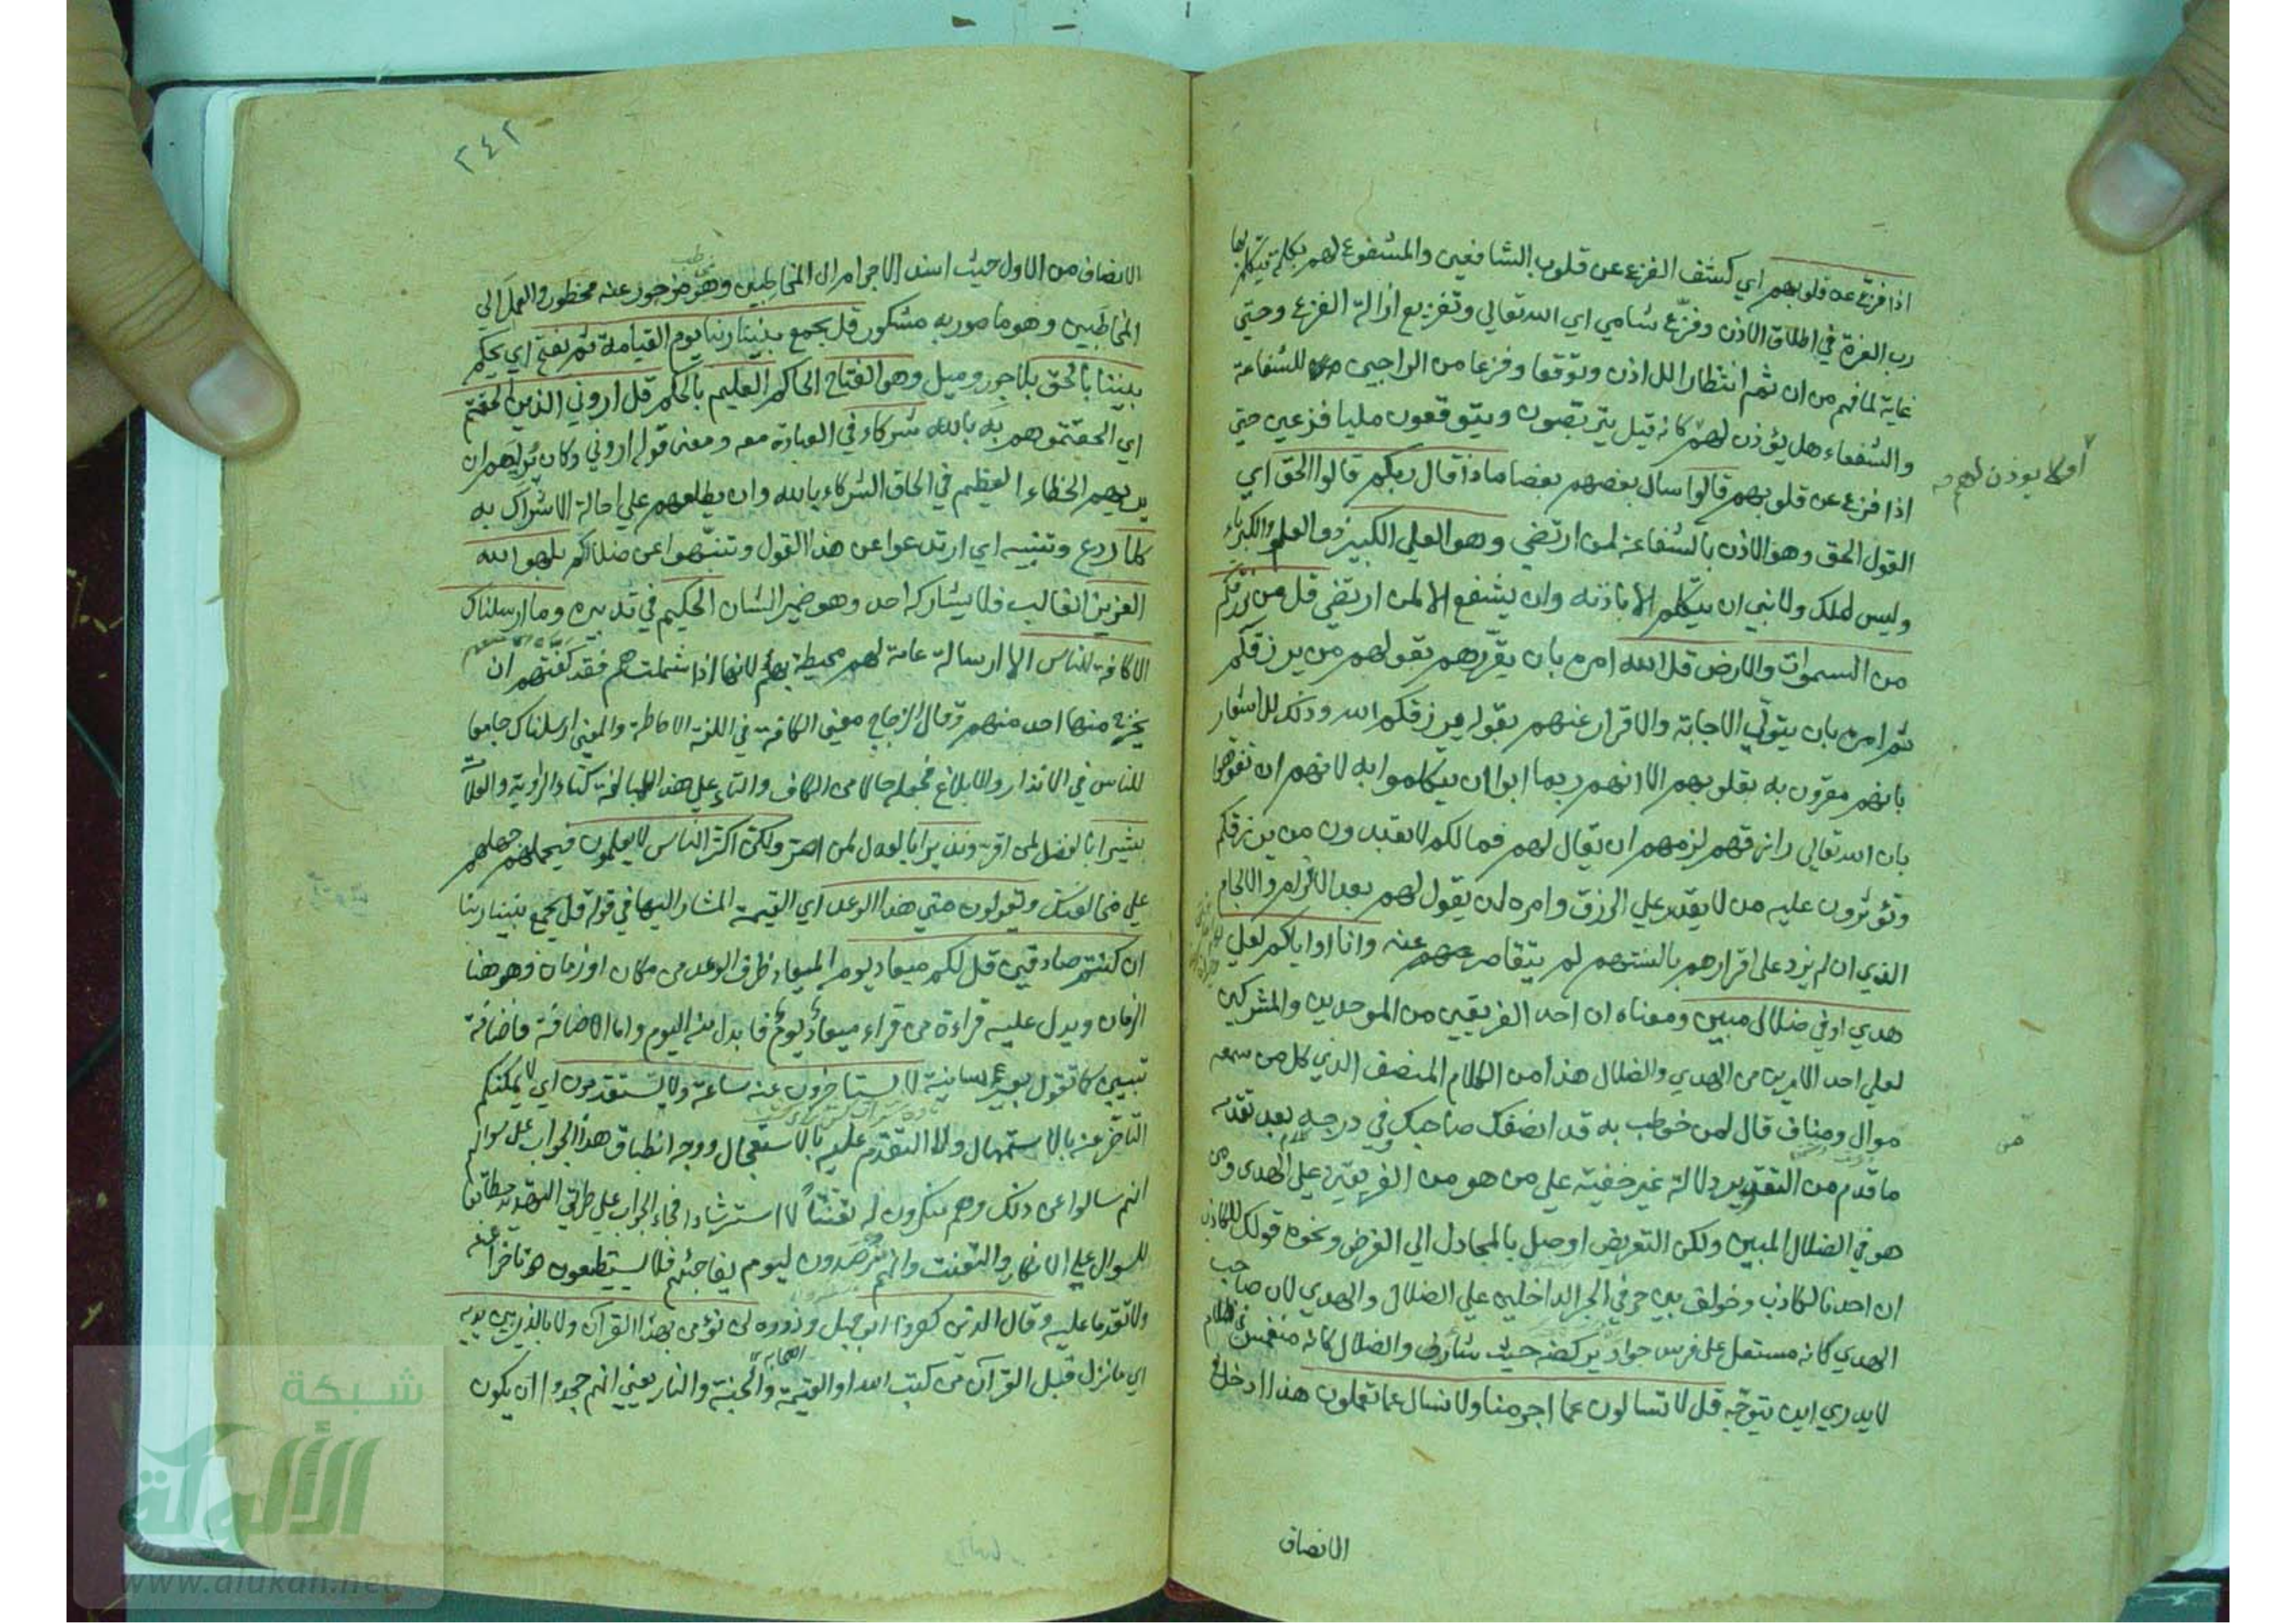 اذا فزع عن قلوبهم اي كشف الفزع عن قلوب الشافعين والمشفوع لهم بكلمة يتكلم بها
رب العزة في اطلاق الاذن وفزّع شامي اي الله تعالي وتفزيع ازالة الفزع وحتي
غاية لما فهم من ان ثم انتظارا للاذن وتوقفا وفزعا من الراجين للشفاعة
والشفعاء هل يؤذن لهم كانه قيل يتربصون ويتوقعون مليا فزعين حتي
أو لا يوذن لهم
اذا فزع عن قلوبهم قالوا سال بعضهم بعضا ماذا قال ربكم قالوا الحق اي
القول الحق وهو الاذن بالشفاعة لمن ارتضي وهو العلي الكبير ذو العلو والكبرياء
وليس لملك ولا نبي ان يتكلم الا باذنه وان يشفع الا لمن ارتضي قل من يرزقكم
من السموات والارض قل الله امره بان يقررهم بقوله من يرزقكم
ثم امره بان يتولّي الاجابة والاقرار عنهم بقوله يرزقكم الله وذلك للاشعار
بانهم مقرون به بقلوبهم الا انهم ربما ابوا ان يتكلموا به لانهم ان تفوهوا
بان الله تعالي رازقهم لزمهم ان يقال لهم فما لكم لا تعبدون من يرزقكم
وتؤثرون عليه من لا يقدر علي الرزق وامره ان يقول لهم بعد الالزام والالجام
الذي ان لم يزد على اقرارهم بالسنتهم لم يتقاصر عنه وانا او اياكم لعلي
هدي او في ضلال مبين ومعناه ان احد الفريقين من الموحدين والمشركين
لعلي احد الامرين من الهدي والضلال هذا من الكلام المنصف الذي كل من سمعه
موال ومناف قال لمن خوطب به قد انصفك صاحبك وفي درجه بعد تقدمه
ما قدم من التقرير دلالة غير خفية علي من هو من الفريقين علي الهدى ومن
هو في الضلال المبين ولكن التعريض اوصل بالمجادل الي الغرض ونحوه قولك للكاذب
ان احدنا لكاذب وخولف بين حرفي الجر الداخلين علي الضلال والهدي لان صاحب
الهدي كانه مستعل على فرس جواد يركضه حيث شاء والضلال كانه منغمس في ظلام
لا يدري اين يتوجّه قل لا تسالون عما اجرمنا ولا نسال عما تعملون هذا ادخل في
الانصاف
٢٤٢
الانصاف من الاول حيث اسند الاجرام الي المخاطبين وهو مزجور عنه محظور والعمل الي
المخاطبين وهو مامور به مشكور قل يجمع بيننا ربنا يوم القيامة ثم يفتح اي يحكم
بيننا بالحق بلا جور وميل وهو الفتاح الحاكم العليم بالحكم قل اروني الذين الحقتم
اي الحقتموهم به بالله شركاء في العبادة معه ومعنى قوله اروني وكان يراهم ان
يريهم الخطاء العظيم في الحاق الشركاء بالله وان يطلعهم علي احالة الاشراك به
كلا ردع وتنبيه اي ارتدعوا عن هذا القول وتنبّهوا عن ضلالكم بل هو الله
العزيز الغالب فلا يشاركه احد وهو ضمير الشان الحكيم في تدبيره وما ارسلناك
الا كافة للناس الا ارسالة عامة لهم محيطة بهم لانها اذا شملتهم فقد كفتهم ان
يخرج منها احد منهم وقال الزجاج معني الكافة في اللغة الاحاطة والمعني ارسلناك جامعا
للناس في الانذار والابلاغ فجعله حالا من الكاف والتاء علي هذا للمبالغة كتاء الراوية والعلامة
بشيرا بالفضل لمن اقر ونذيرا بالعدل لمن اصر ولكن اكثر الناس لا يعلمون فيحملهم جهلهم
علي مخالفتك ويقولون متي هذا الوعد اي القيمة المشار اليها في قوله قل يجمع بيننا ربنا
ان كنتم صادقين قل لكم ميعاد يوم الميعاد ظرف الوعد من مكان او زمان وهو هنا
الزمان ويدل عليه قراءة من قراء ميعادٌ يومٌ فابدل منه اليوم واما الاضافة فاضافة
تبيين كما تقول بعير سانية لا تستاخرون عنه ساعة ولا تستقدمون اي لا يمكنكم
التاخر عنه بالاستمهال ولا التقدم عليه بالاستعجال ووجه انطباق هذا الجواب على سوالهم
انهم سالوا عن ذلك وهم منكرون له تعنتاً لا استرشادا فجاء الجواب علي طريق التهديد مطابقا
للسوال علي الانكار والتعنت وانهم مرصدون ليوم يفاجئهم فلا يستطيعون تاخرا عنه
ولا تقدما عليه وقال الذين كفروا ابو جهل وذووه لن نؤمن بهذا القرآن ولا بالذي بين يديه
اي ما نزل قبل القرآن من كتب الله او القيمة والجنة والنار يعني انهم جحدوا ان يكون
شبكة
الألوكة
www.alukah.net